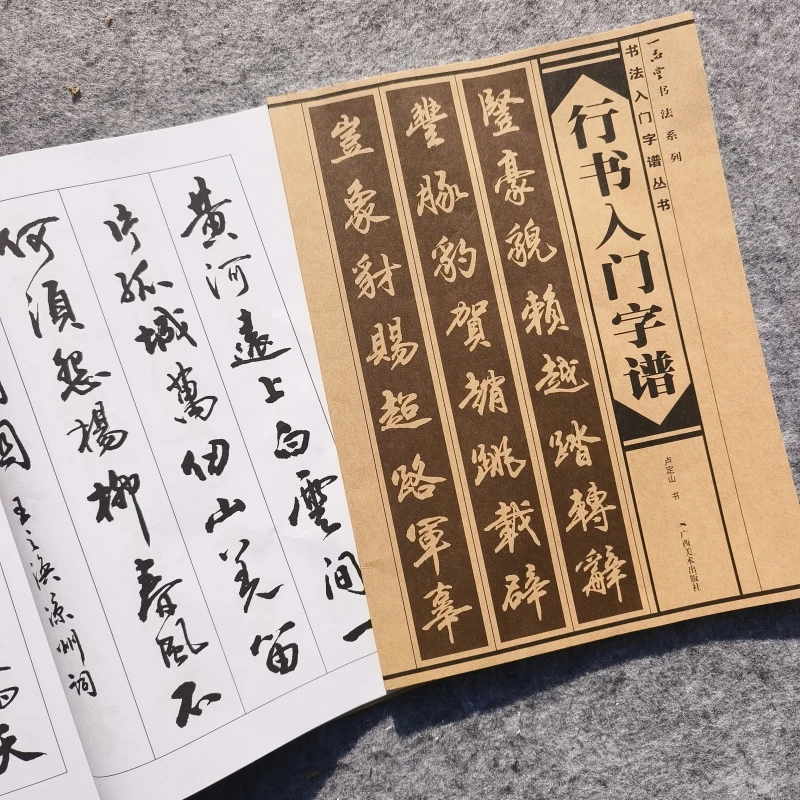 一品堂书法系列
书法入门字谱丛书
行书入门字谱
卢定山 书
广西美术出版社
豎豪貌賴越踏轉辭
豐豚豹賀趙跳載辟
豈象豺賜超路軍辜
黄河遠上白雲間一
片孤城萬仞山羌笛
何須怨楊柳春風不
王之渙凉州詞
天